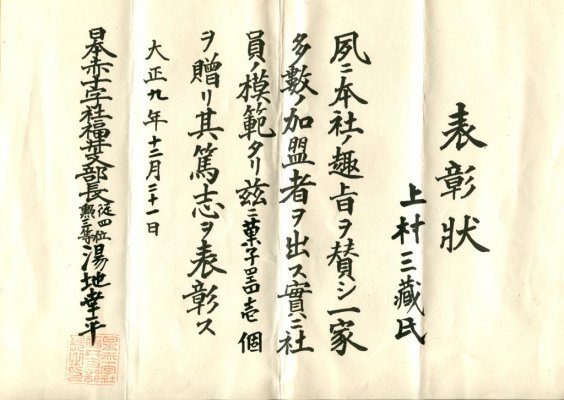 表彰狀
上村三藏氏
夙ニ本社ノ趣旨ヲ賛シ一家
多數ノ加盟者ヲ出ス實ニ社
員ノ模範タリ茲ニ菓子器壱個
ヲ贈リ其篤志ヲ表彰ス
大正九年十二月三十一日
日本赤十字社福井支部長從四位勲三等湯地幸平